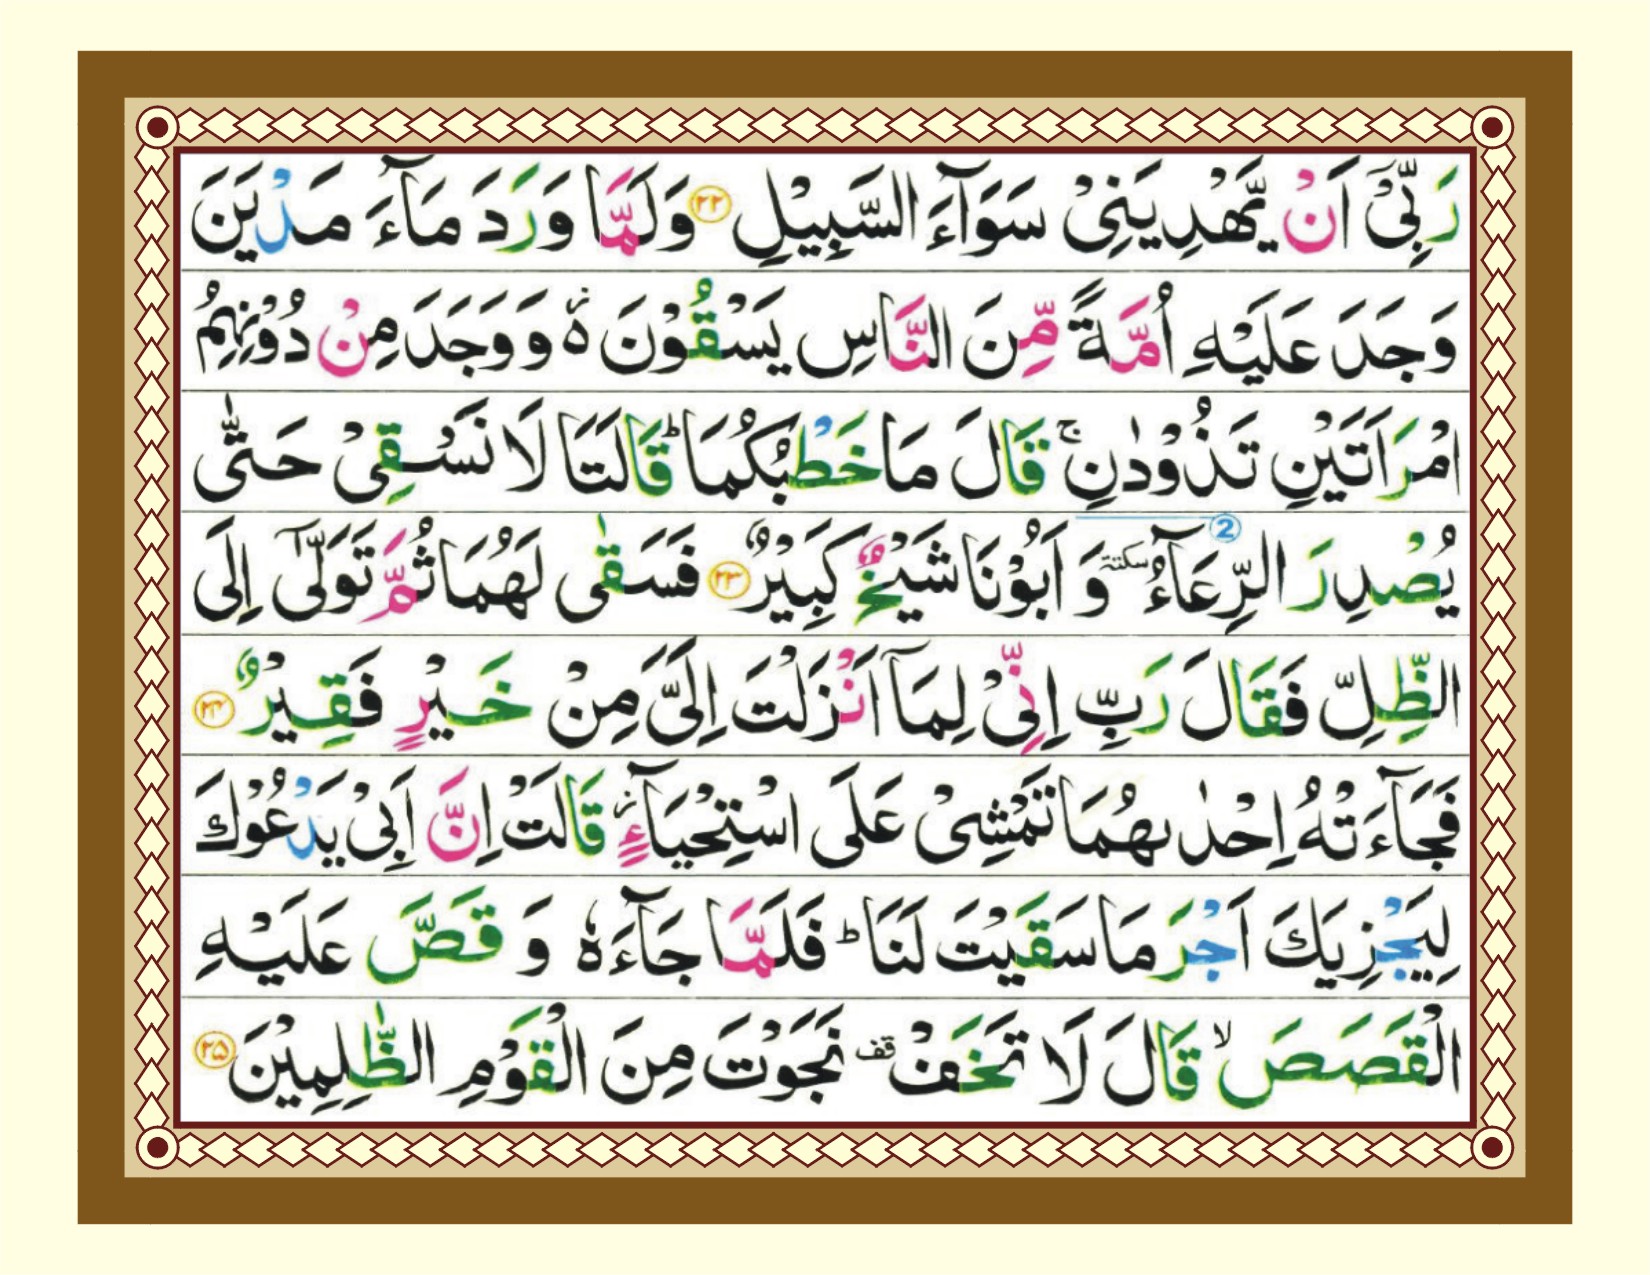 رَبِّىْٓ اَنْ يَّهْدِيَنِىْ سَوَآءَ السَّبِيْلِ ۲۲ وَلَمَّا وَرَدَ مَآءَ مَدْيَنَ
وَجَدَ عَلَيْهِ اُمَّةً مِّنَ النَّاسِ يَسْقُوْنَ ەۛ وَوَجَدَ مِنْ دُوْنِهِمُ
امْرَاَتَيْنِ تَذُوْدٰنِ ۚ قَالَ مَا خَطْبُكُمَا ؕ قَالَتَا لَا نَسْقِىْ حَتّٰى
يُصْدِرَ الرِّعَآءُ سکتۃ وَ اَبُوْنَا شَيْخٌ كَبِيْرٌ ۲۳ فَسَقٰى لَهُمَا ثُمَّ تَوَلّٰٓى اِلَى 2
الظِّلِّ فَقَالَ رَبِّ اِنِّىْ لِمَآ اَنْزَلْتَ اِلَىَّ مِنْ خَيْرٍ فَقِيْرٌ ۲۴
فَجَآءَتْهُ اِحْدٰىهُمَا تَمْشِىْ عَلَى اسْتِحْيَآءٍ ز قَالَتْ اِنَّ اَبِىْ يَدْعُوْكَ
لِيَجْزِيَكَ اَجْرَ مَا سَقَيْتَ لَنَا ؕ فَلَمَّا جَآءَهٗ وَ قَصَّ عَلَيْهِ
الْقَصَصَ ۙ قَالَ لَا تَخَفْ قف نَجَوْتَ مِنَ الْقَوْمِ الظّٰلِمِيْنَ ۲۵